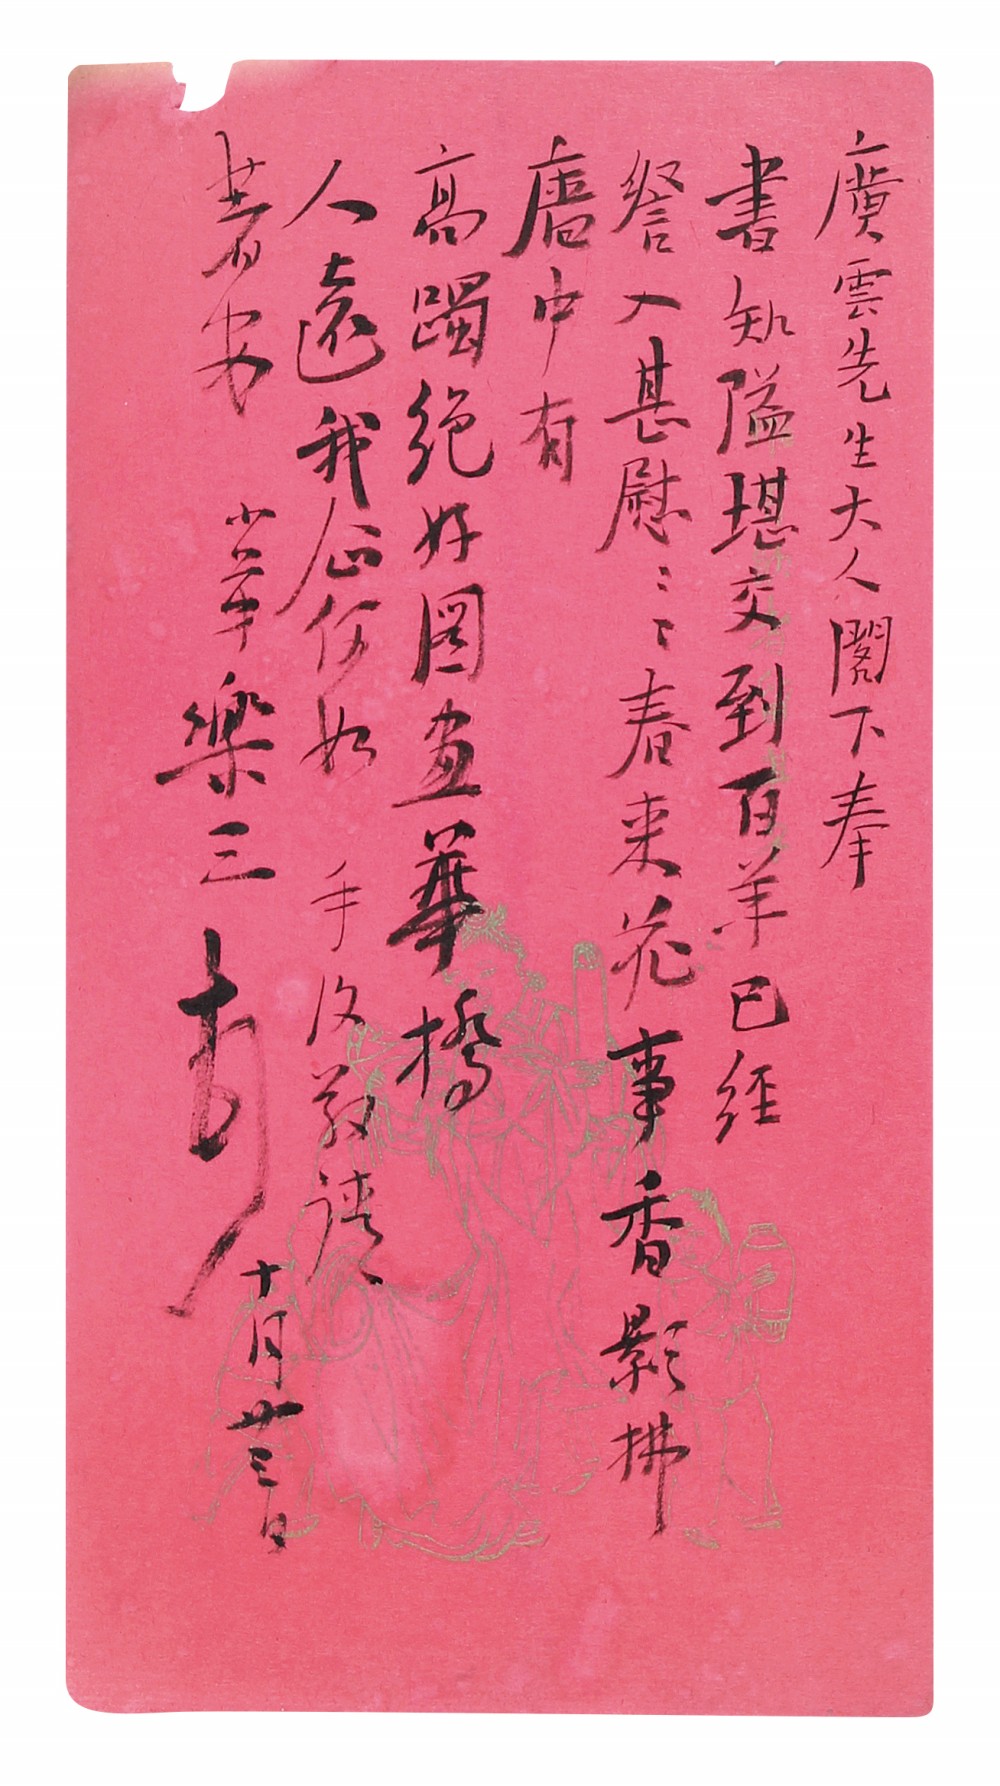 廣雲先生大人閣下奉
書知隘堪交到百羊已經
詧入甚慰〻〻春來花事香影拂
廧中有
高躅絕好圖畫華橋
人遠我何如手復敬請
著安 小弟樂三
十月廿三日